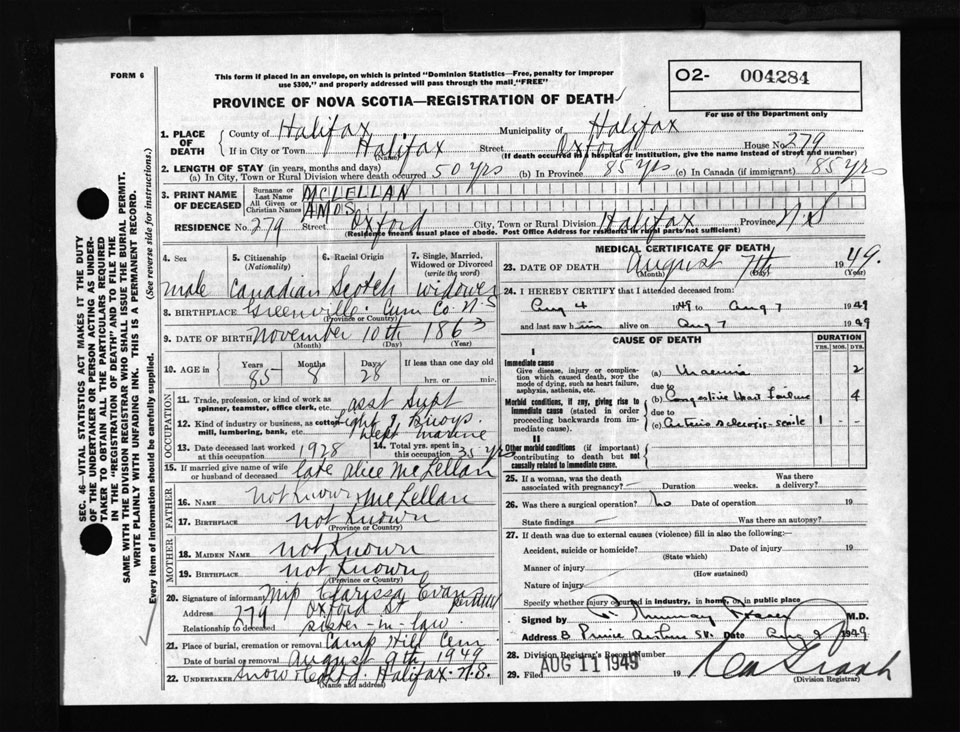 FORM 6
This form if placed in an envelope, on which is printed "Dominion Statistics—Free, penalty for improper
use $300," and properly addressed will pass through the mail "FREE"
O2- 004284
For use of the Department only
PROVINCE OF NOVA SCOTIA—REGISTRATION OF DEATH
1. PLACE OF DEATH
County of Halifax Municipality of Halifax
If in City or Town Halifax (Name) Street Oxford House No. 279
(If death occurred in a hospital or institution, give the name instead of street and number)
2. LENGTH OF STAY (in years, months and days)
(a) In City, Town or Rural Division where death occurred 50 yrs (b) In Province 85 yrs (c) In Canada (if immigrant) 85 yrs
3. PRINT NAME OF DECEASED
Surname or Last Name MCLELLAN
All Given or Christian Names AMOS
RESIDENCE No. 279 Street Oxford City, Town or Rural Division Halifax Province N.S
(Residence means usual place of abode. Post Office Address for residents in rural parts not sufficient)
4. Sex
male
5. Citizenship (Nationality)
Canadian
6. Racial Origin
Scotch
7. Single, Married, Widowed or Divorced (write the word)
widower
8. BIRTHPLACE Greenville Cum Co. N.S
(Province or Country)
9. DATE OF BIRTH November 10th 1863
(Month) (Day) (Year)
10. AGE in Years 85 Months 8 Days 28 If less than one day old
hrs. or min.
OCCUPATION
11. Trade, profession, or kind of work as
spinner, teamster, office clerk, etc. asst Supt
12. Kind of industry or business, as cotton-
mill, lumbering, bank, etc. Dept marine
13. Date deceased last worked at this occupation 1928 14. Total yrs. spent in this occupation 35 yrs
15. If married give name of wife
or husband of deceased late Alice McLellan
FATHER
16. NAME not known McLellan
17. BIRTHPLACE not known
(Province or Country)
MOTHER
18. MAIDEN NAME not known
19. BIRTHPLACE not known
(Province or Country)
20. Signature of informant Clarissa
Address 279 Oxford St
Relationship to deceased sister-in-law
21. Place of burial, cremation or removal Camp Hill Cem
Date of burial or removal August 9th 1949
22. UNDERTAKER Snow & Co Ltd. Halifax. N.S.
(Name and address)
MEDICAL CERTIFICATE OF DEATH
23. DATE OF DEATH August 7th 1949.
(Month) (Day) (Year)
24. I HEREBY CERTIFY that I attended deceased from:
Aug 4 1949 to Aug 7 1949
and last saw him alive on Aug 7 1949
CAUSE OF DEATH
DURATION
YRS. MOS. DYS.
I
Immediate cause
Give disease, injury or complication which caused death, not the mode of dying, such as heart failure, asphyxia, asthenia, etc.
(a) Uraemia 2
due to
Morbid conditions, if any, giving rise to immediate cause (stated in order proceeding backwards from immediate cause).
(b) Congestive Heart Failure 4
due to
(c) Arterio sclerosis - senile 1 -
II
Other morbid conditions (if important) contributing to death but not causally related to immediate cause.
25. If a woman, was the death associated with pregnancy? Duration weeks. Was there a delivery?
26. Was there a surgical operation? no Date of operation 19
State findings Was there an autopsy?
27. If death was due to external causes (violence) fill in also the following:
Accident, suicide or homicide? (State which) Date of injury 19
Manner of injury
(How sustained)
Nature of injury
Specify whether injury occurred in industry, in home, or in public place
Signed by M.D.
Address 8 Prince Arthur St. Date Aug 9 1949
28. Division Registrar's Record Number
29. Filed AUG 11 1949 19
(Division Registrar)
SEC. 46 VITAL STATISTICS ACT MAKES IT THE DUTY
OF THE UNDERTAKER OR PERSON ACTING AS UNDER-
TAKER TO OBTAIN ALL THE PARTICULARS REQUIRED
IN THE "REGISTRATION OF DEATH" AND TO FILE THE
SAME WITH THE DIVISION REGISTRAR WHO SHALL ISSUE THE BURIAL PERMIT.
WRITE PLAINLY WITH UNFADING INK. THIS IS A PERMANENT RECORD.
Every item of information should be carefully supplied. (See reverse side for instructions.)